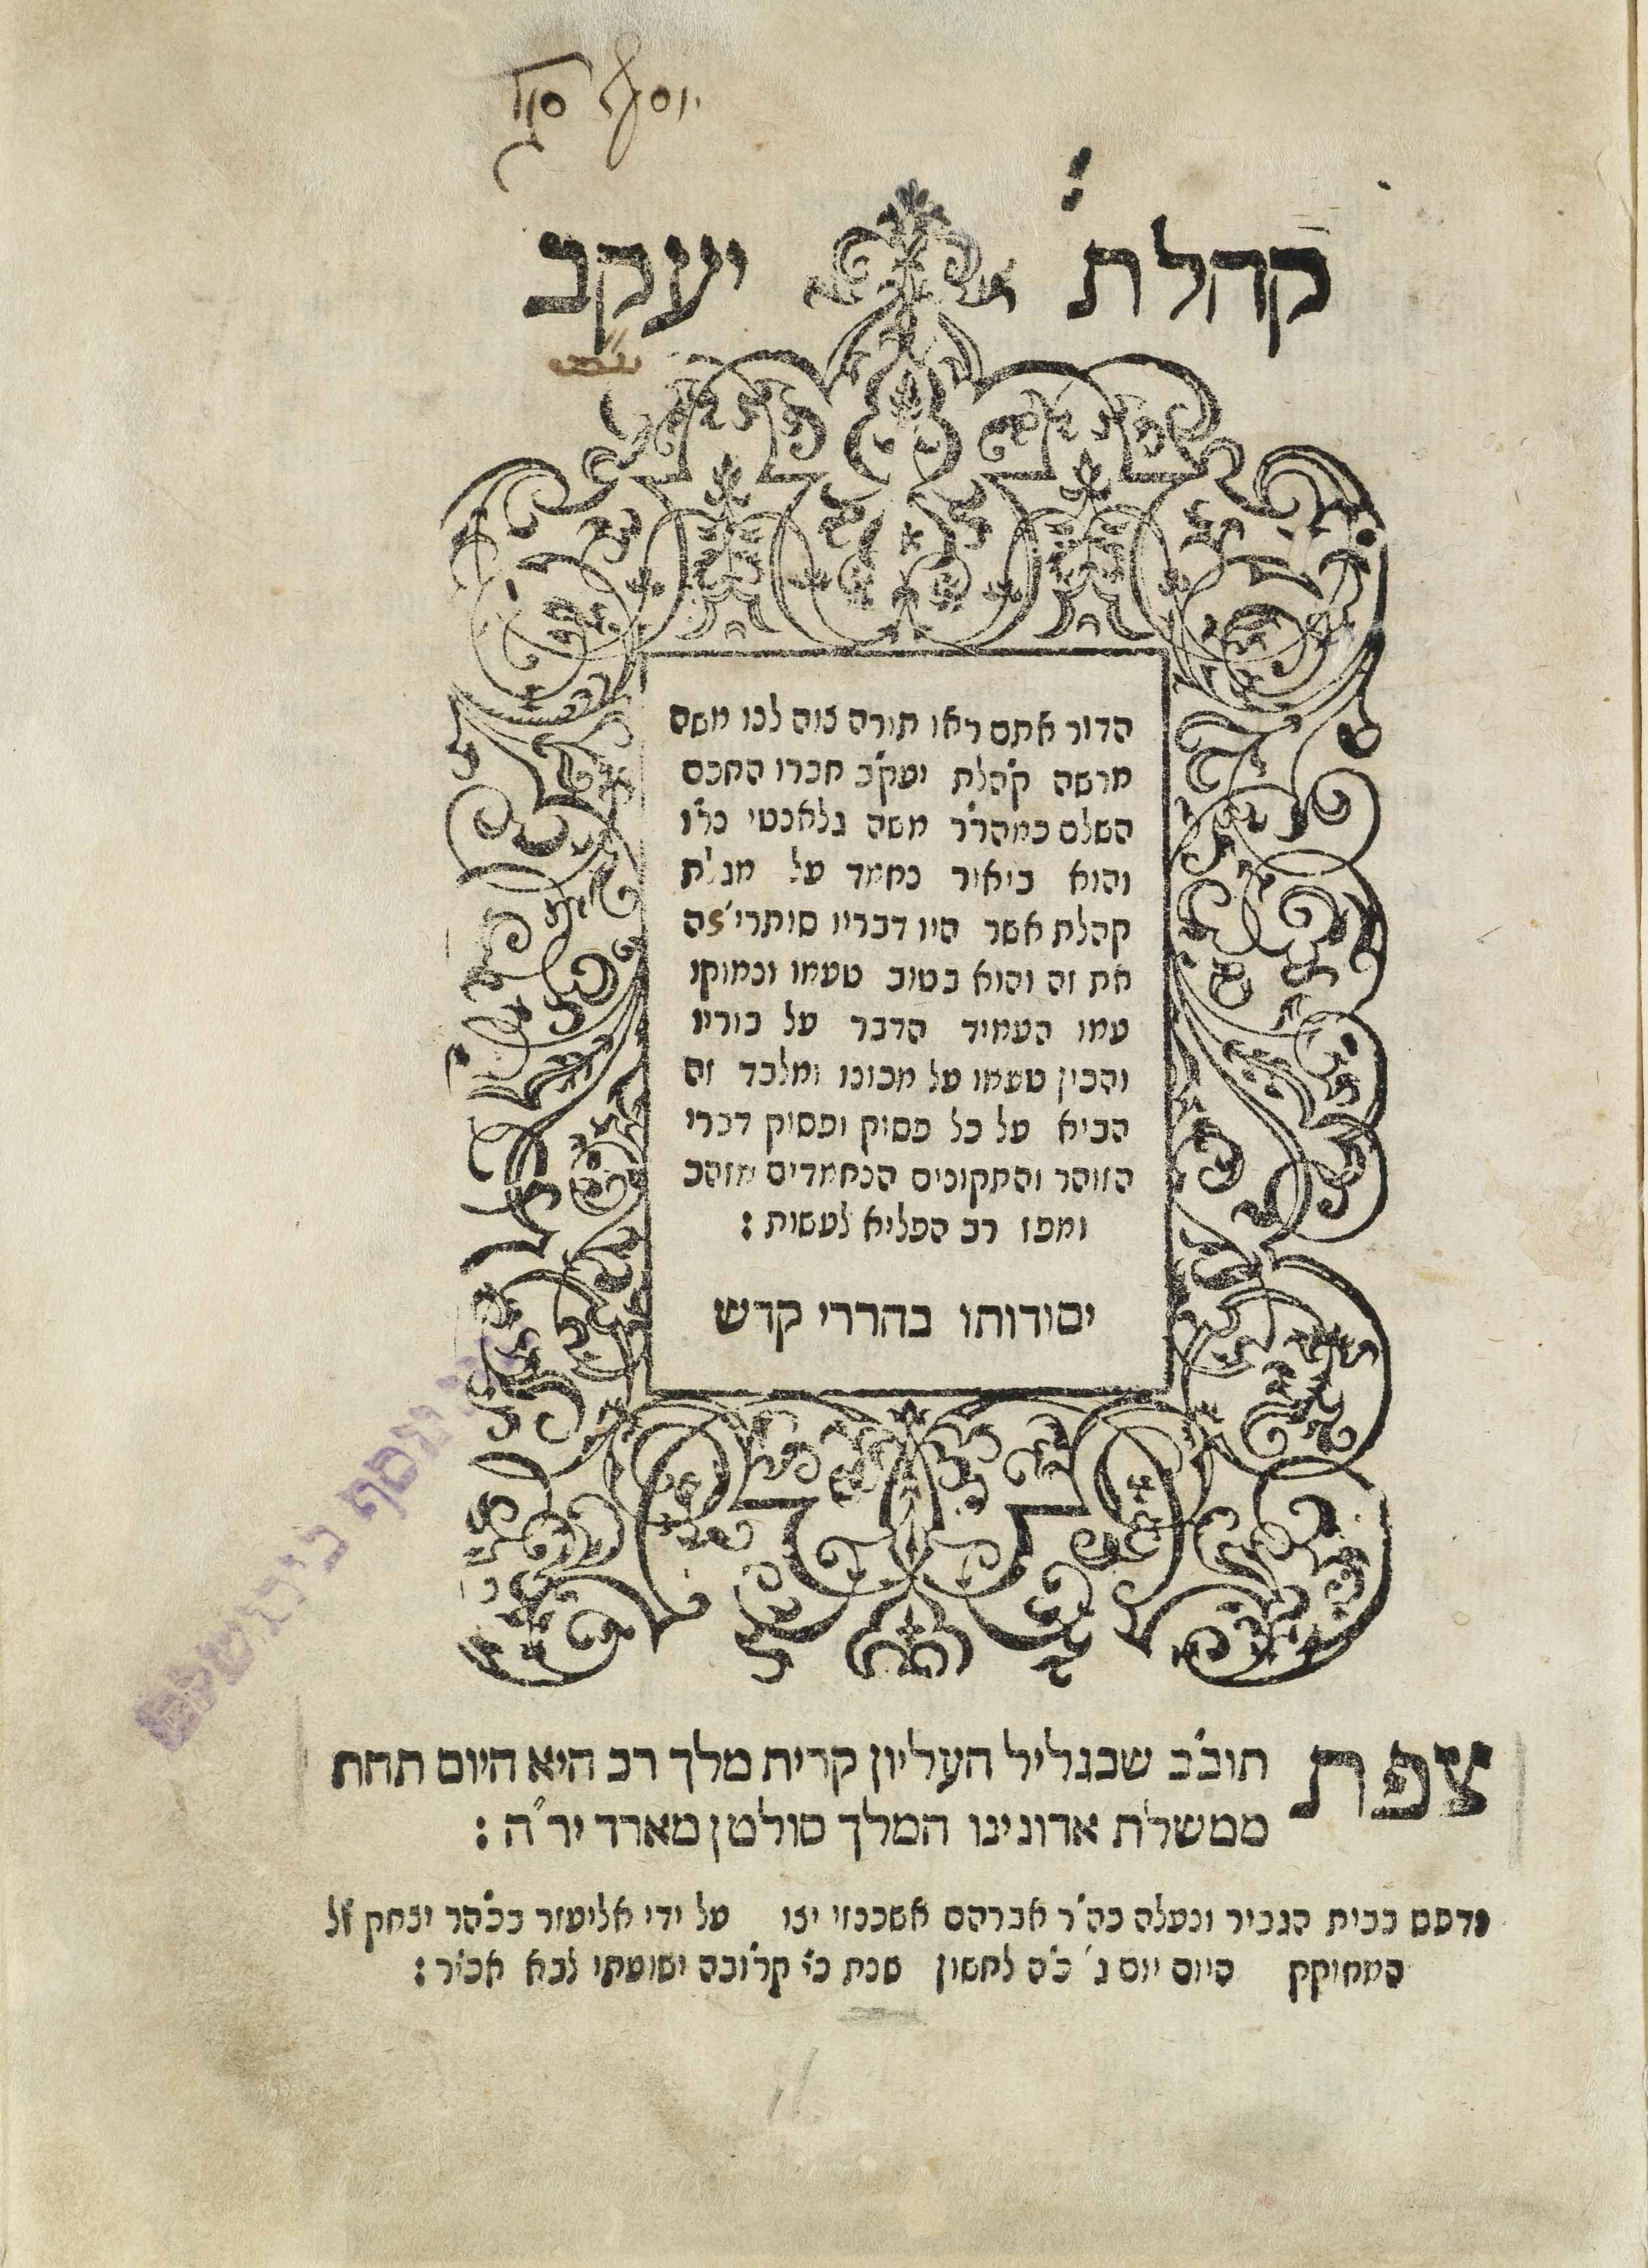 קהלת יעקב
הדור אתם ראו תורה צוה לנו משה
מרשה קהלת יעקב חברו החכם
השלם כמהר״ר משה גלאנטי נר״ו
והוא ביאור נחמד על מגלת
קהלת אשר היו דבריו סותרי׳
את זה והוא בטוב טעמו ונמוקו
עמו העמיד הדבר על בוריו
והכין טעמו על מכונו ומלבד זה
הביא על כל פסוק ופסוק דברי
הזוהר והתקונים הנחמדים מזהב
ומפז רב הפליא לעשות :
יסודותו בהררי קדש
צפת תוב״ב שבגליל העליון קרית מלך רב היא היום תחת
ממשלת אדונינו המלך סולטן מארד יר״ה :
נדפס בבית הגביר ונעלה כה״ר אברהם אשכנזי יצו על ידי אליעזר בכ״הר יצחק ז״ל
המחוקק היום יום ג׳ כ״ה לחשון שנת כ״י קרובה ישועתי לבא אכי״ר :